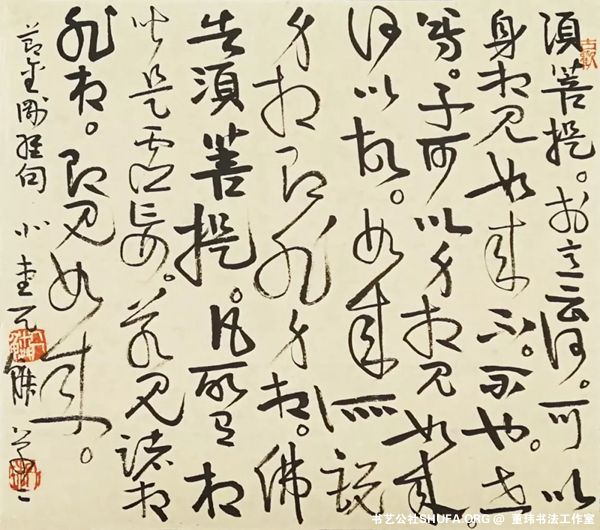 須菩提。於意云何。可以
身相見如來不。不也。世
尊。不可以身相見如來。
何以故。如來所說
身相即非身相。佛
告須菩提。凡所有相
皆是虛妄。若見諸相
非相。即見如來。
節金剛經句
书艺公社SHUFA.ORG @ 重玮书法工作室